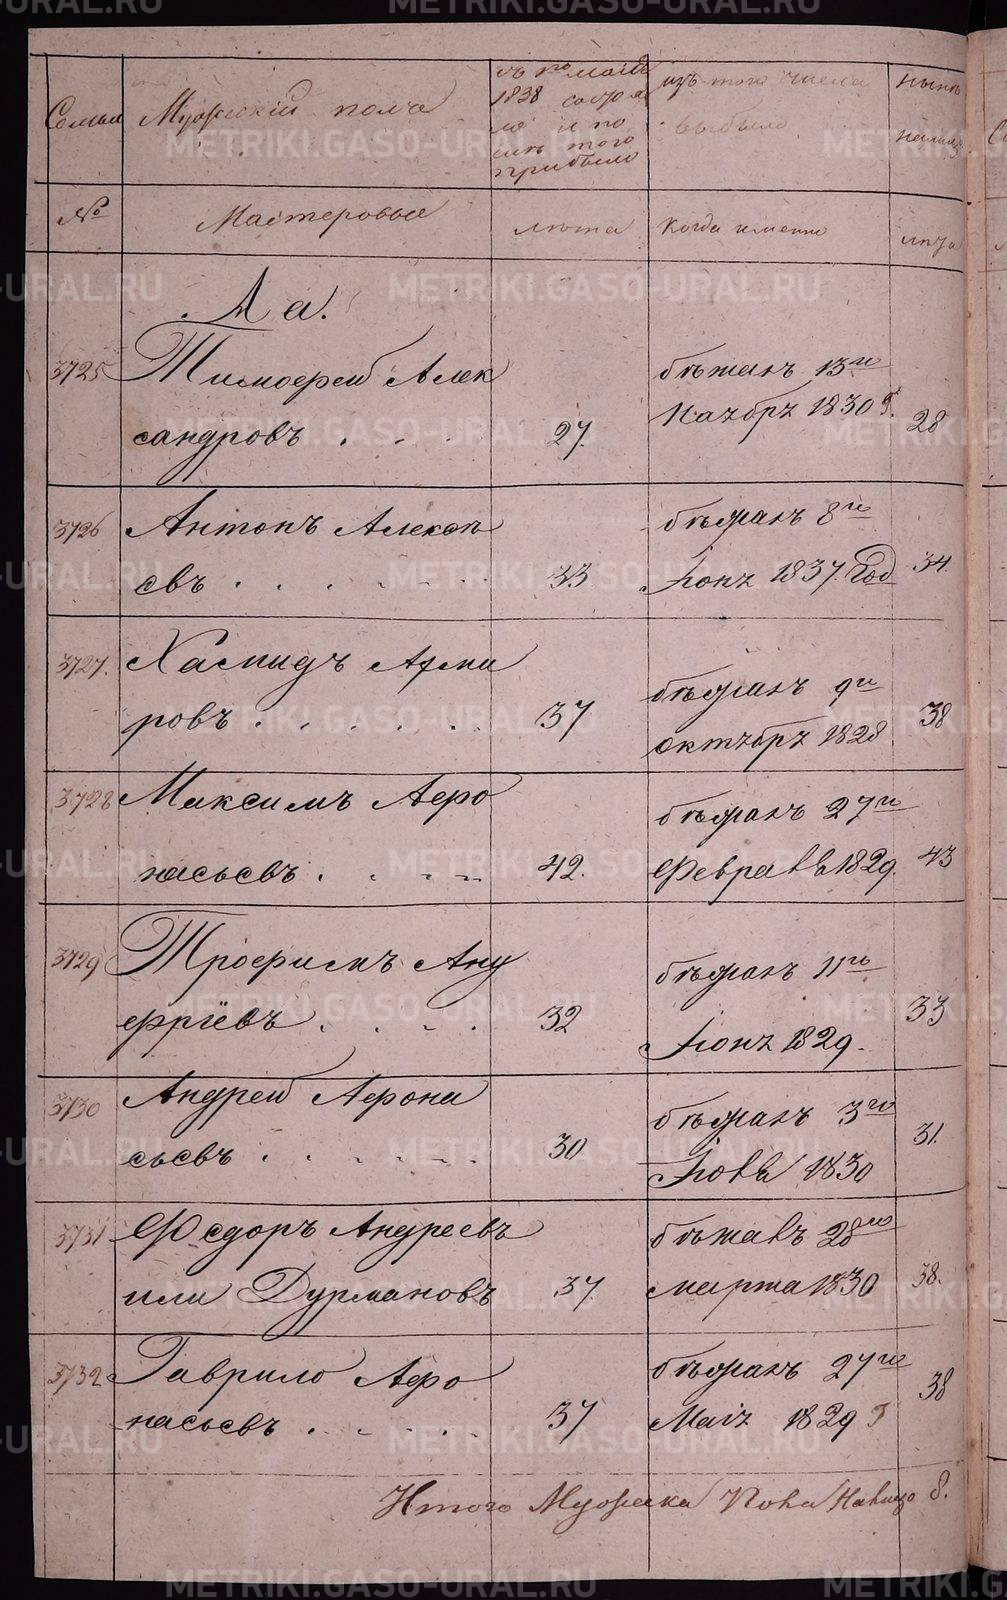 Семьи
Мужескій полъ
1838
и по
того
прибыло
изъ того числа
выбыло
нынѣ
налицо
№
Мастеровые
лѣта
когда именно
лѣта
А а.
3725
Тимофей Алек
сандровъ . . . .
27.
бѣжалъ 13го
Ноября 1830 г.
28
3726
Антонъ Алексѣ
евъ . . . . . .
33
бѣжалъ 8го
Іюня 1837 год
34.
3727.
Хамидъ Ами
ровъ . . . . . .
37
бѣжалъ 9го
октября 1828
38
3728
Максимъ Афо
насьевъ . . . .
42.
бѣжалъ 27го
Февраля 1829.
43
3729
Трофимъ Ану
фріевъ . . . .
32
бѣжалъ 11го
Іюня 1829.
33
3730
Андрей Афона
сьевъ . . . . . .
30
бѣжалъ 3го
Іюля 1830
31.
3731
Федоръ Андреевъ
или Дурмановъ
37
бѣжалъ 28го
марта 1830
38.
3732
Гаврило Афо
насьевъ . . . . .
37
бѣжалъ 27го
Маія 1829 г
38
Итого Мужеска Пола Налицо 8.
METRIKI.GASO-URAL.RU